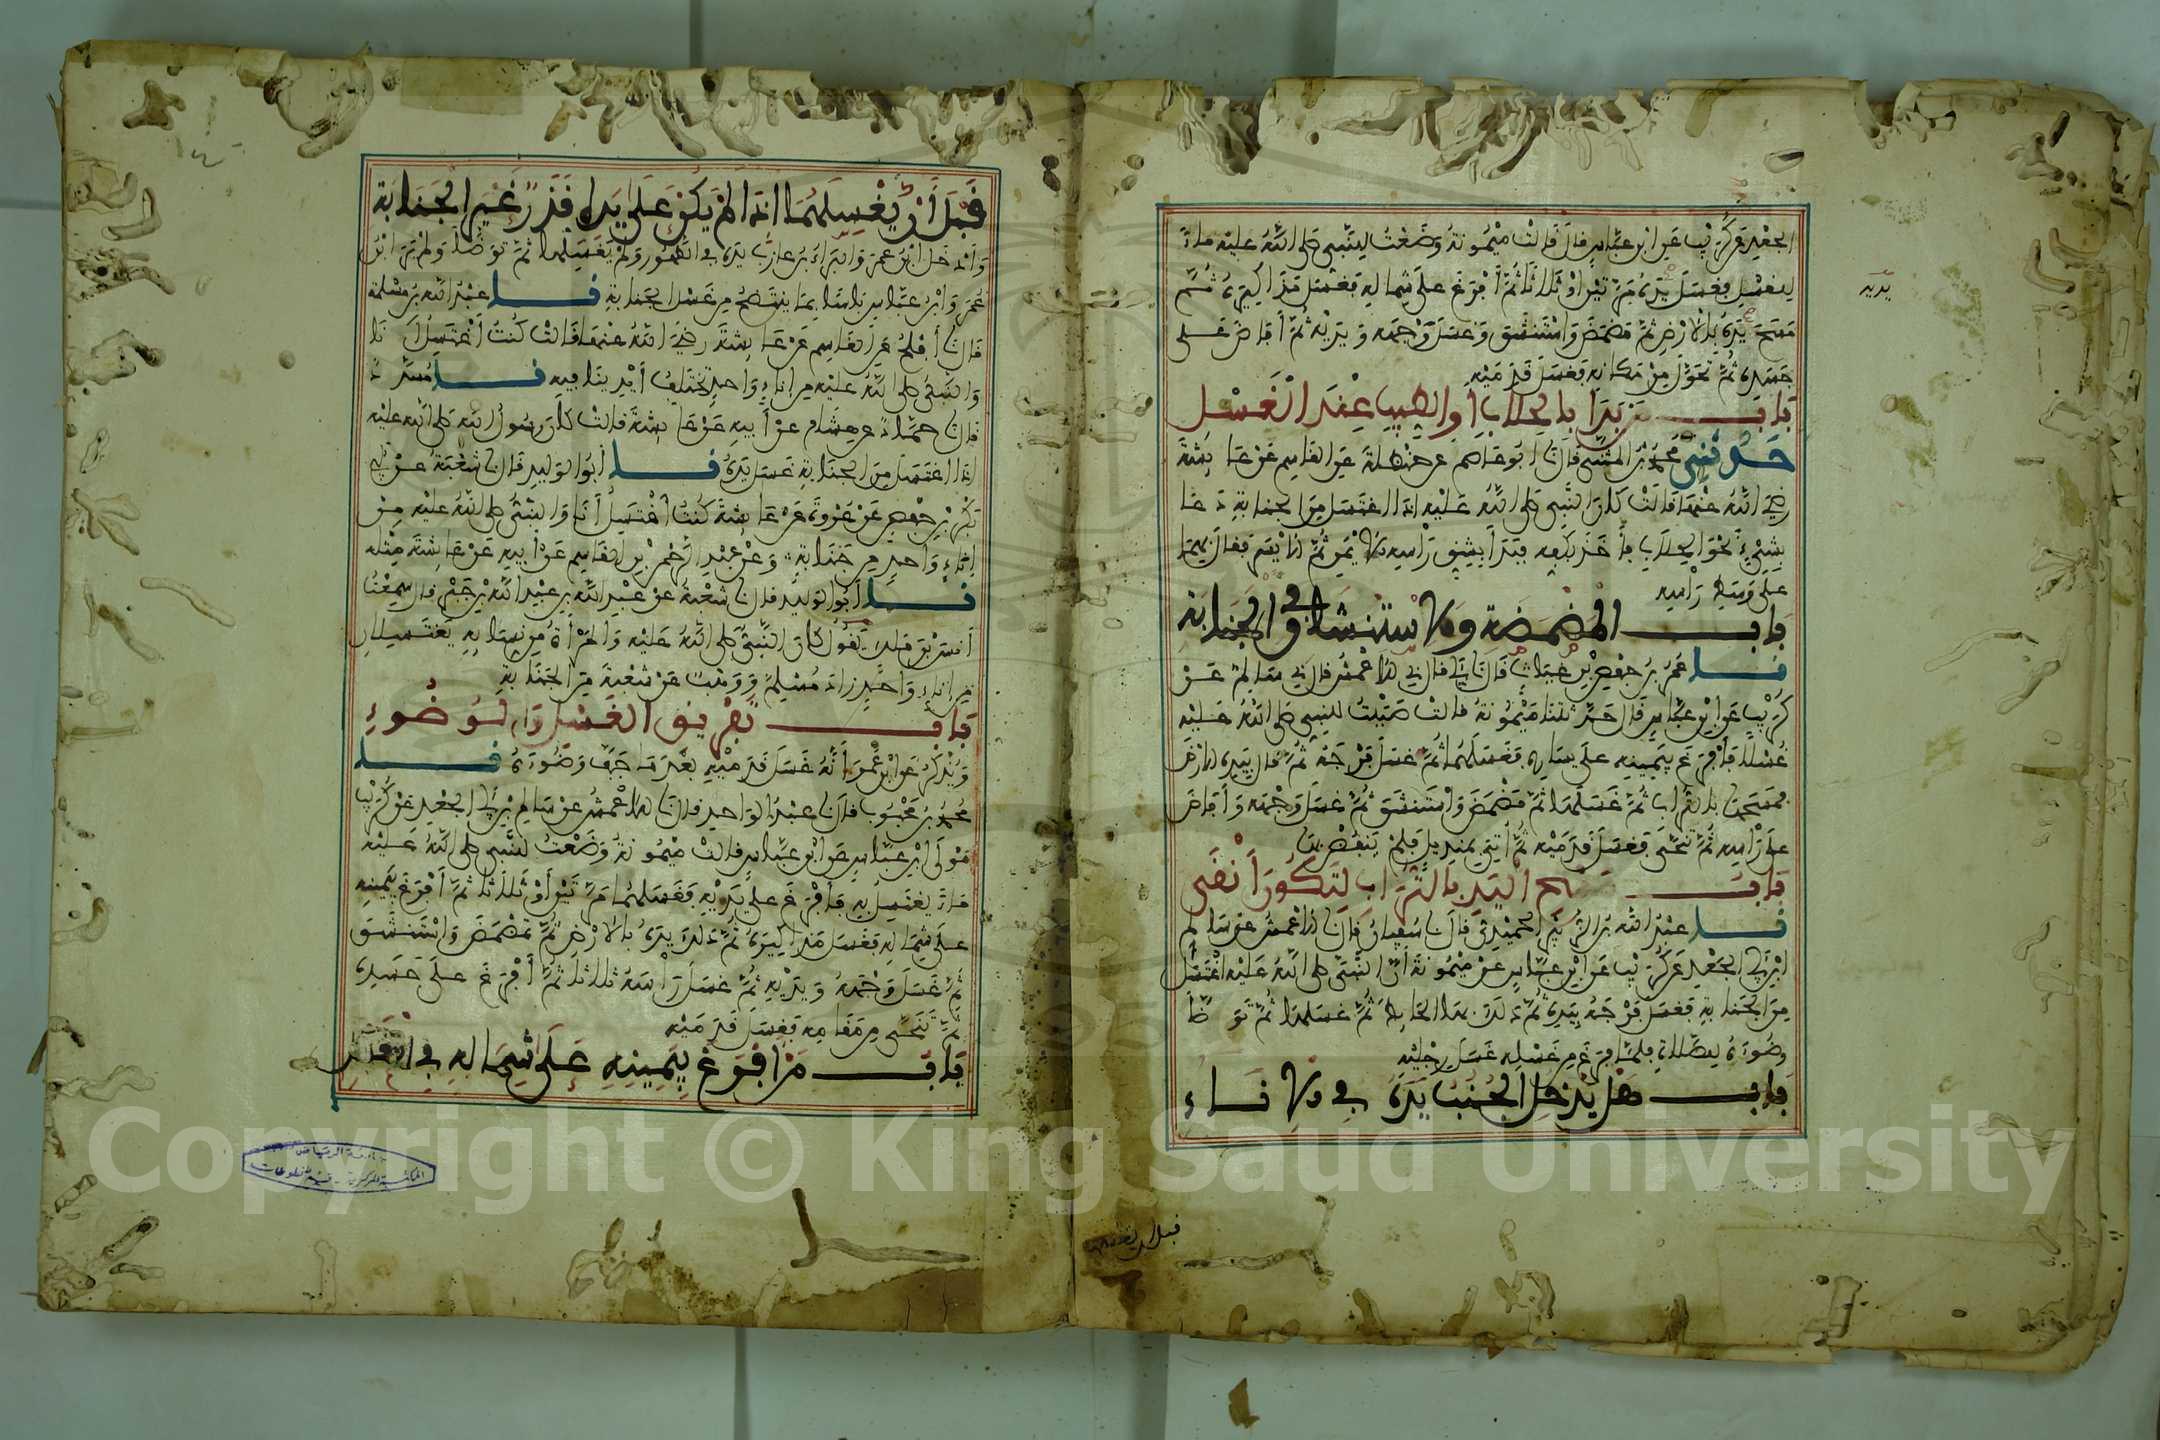 الجعد عن كريب عن ابن عباس قال قالت ميمونة وضعت للنبي صلى الله عليه ماء
للغسل فغسل يده مرتين او ثلاثا ثم أفرغ على شماله فغسل مذاكيره ثم
مسح يده بالأرض ثم مضمض واستنشق وغسل وجهه ويديه ثم أفاض على
جسده ثم تحول من مكانه فغسل قدميه
يديه
باب من بدأ بالحلاب أو الطيب عند الغسل
حدثني محمد بن المثنى قال نا ابو عاصم عن حنظلة عن القاسم عن عائشة
رضي الله عنها قالت كان النبي صلى الله عليه اذا اغتسل من الجنابة دعا
بشيء نحو الحلاب فأخذ بكفه فبدأ بشق رأسه الأيمن ثم الأيسر فقال بهما
على وسط رأسه
باب المضمضة والاستنشاق في الجنابة
نا عمر بن حفص بن غياث قال نا أبي قال ني الأعمش قال ني سالم عن
كريب عن ابن عباس قال حدثتنا ميمونة قالت صببت للنبي صلى الله عليه
غسلا فأفرغ بيمينه على يساره فغسلهما ثم غسل فرجه ثم قال بيده الأرض
فمسحها بالتراب ثم غسلها ثم مضمض واستنشق ثم غسل وجهه وأفاض
على رأسه ثم تنحى فغسل قدميه ثم أتي بمنديل فلم ينفض بها
باب مسح اليد بالتراب لتكون أنقى
نا عبد الله بن الزبير الحميدي قال نا سفيان قال نا الأعمش عن سالم
ابن أبي الجعد عن كريب عن ابن عباس عن ميمونة أن النبي صلى الله عليه اغتسل
من الجنابة فغسل فرجه بيده ثم دلك بها الحائط ثم غسلها ثم توضأ
وضوءه للصلاة فلما فرغ من غسله غسل رجليه
باب هل يدخل الجنب يده في الاناء
قبل ان يغسلهما
قبل أن يغسلهما اذا لم يكن على يده قذر غير الجنابة
وأدخل ابن عمر والبراء بن عازب يده في الطهور ولم يغسلها ثم توضأ ولم ير ابن
عمر وابن عباس بأسا بما ينتضح من غسل الجنابة نا عبد الله بن مسلمة
قال نا أفلح عن القاسم عن عائشة رضي الله عنها قالت كنت أغتسل أنا
والنبي صلى الله عليه من إناء واحد تختلف أيدينا فيه نا مسدد
قال نا حماد عن هشام عن أبيه عن عائشة قالت كان رسول الله صلى الله عليه
اذا اغتسل من الجنابة غسل يده نا أبو الوليد قال نا شعبة عن أبي
بكر بن حفص عن عروة عن عائشة كنت أغتسل أنا والنبي صلى الله عليه من
إناء واحد من جنابة وعن عبد الرحمن بن القاسم عن أبيه عن عائشة مثله
نا أبو الوليد قال نا شعبة عن عبد الله بن عبد الله بن جبر قال سمعت
أنس بن مالك يقول كان النبي صلى الله عليه والمرأة من نسائه يغتسلان
من إناء واحد زاد مسلم ووهب عن شعبة من الجنابة
باب تفريق الغسل والوضوء
ويذكر عن ابن عمر أنه غسل قدميه بعد ما جف وضوءه نا
محمد بن محبوب قال نا عبد الواحد قال نا الأعمش عن سالم بن أبي الجعد عن كريب
مولى ابن عباس عن ابن عباس قالت ميمونة وضعت للنبي صلى الله عليه
ماء يغتسل به فأفرغ على يديه فغسلهما مرتين أو ثلاثا ثم أفرغ بيمينه
على شماله فغسل مذاكيره ثم دلك يده بالأرض ثم تمضمض واستنشق
ثم غسل وجهه ويديه ثم غسل رأسه ثلاثا ثم أفرغ على جسده
ثم تنحى من مقامه فغسل قدميه
باب من أفرغ بيمينه على شماله في الغسل
جامعة الرياض
المكتبة المركزية - قسم المخطوطات
Copyright © King Saud University